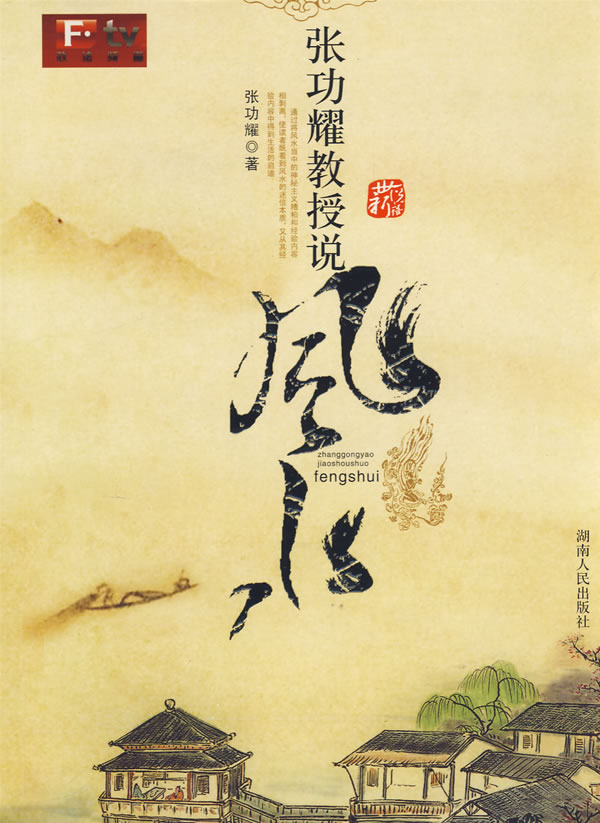 F·tv
张功耀教授说
风水
张功耀◎著
通过将风水当中的神秘主义糟粕和经验内容
相剥离,使读者既看到风水的迷信本质,又从其经
验内容中得到生活的启迪。
zhanggongyao
jiaoshoushuo
fengshui
湖南人民出版社